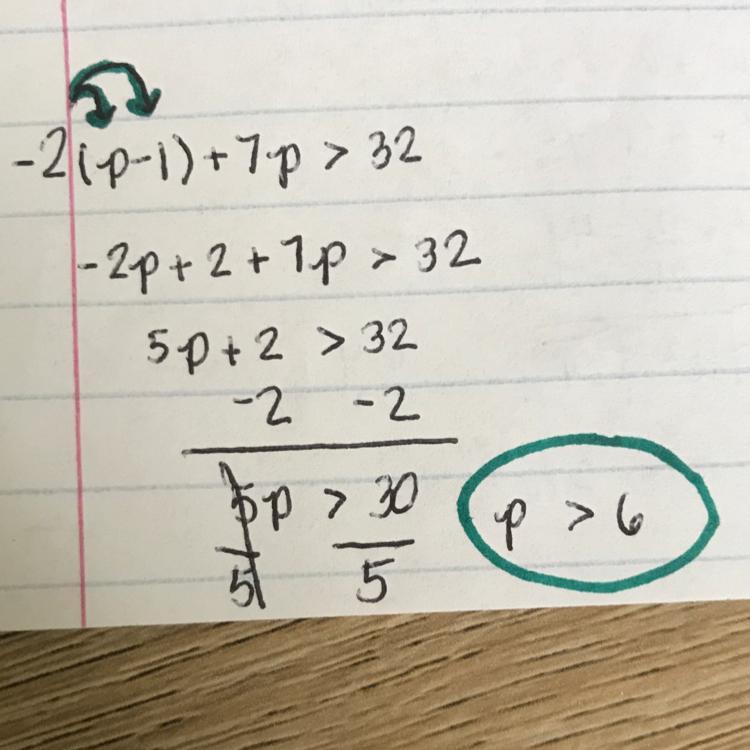 -2(p-1)+7p > 32
-2p+2+7p > 32
5p+2 > 32
-2 -2
5p > 30 p > 6
5 5